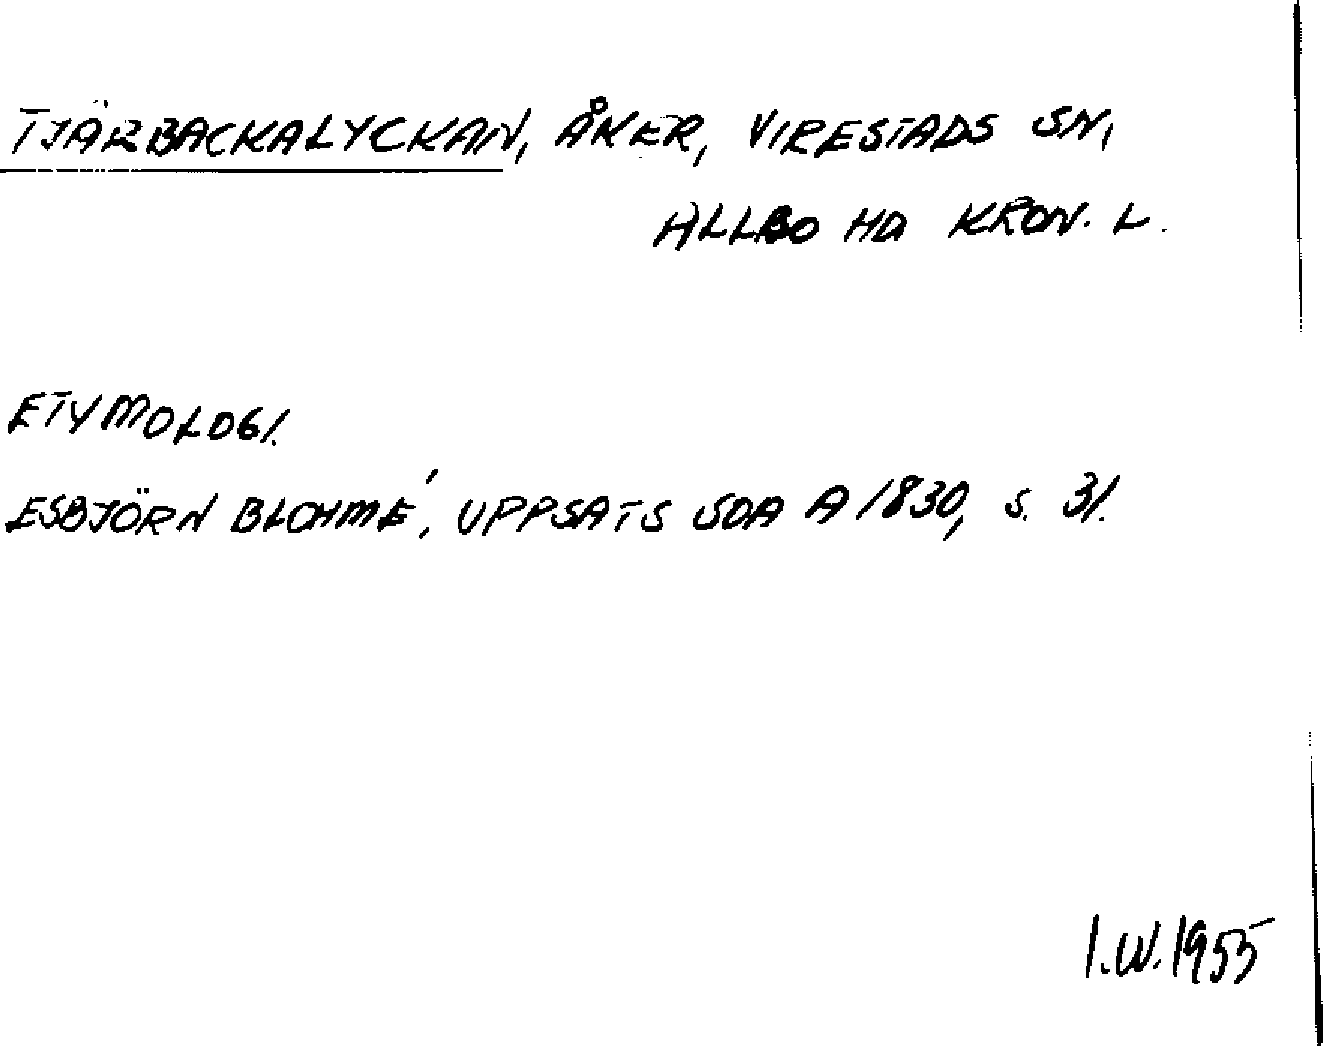 TJÄRBACKALYCKAN, ÅKER, VIRESTADS SN,
ALLBO HD KRON. L.
ETYMOLOGI.
ESBJÖRN BLOHMÉ, UPPSATS SOA A 1830, S. 31.
I.W. 1955